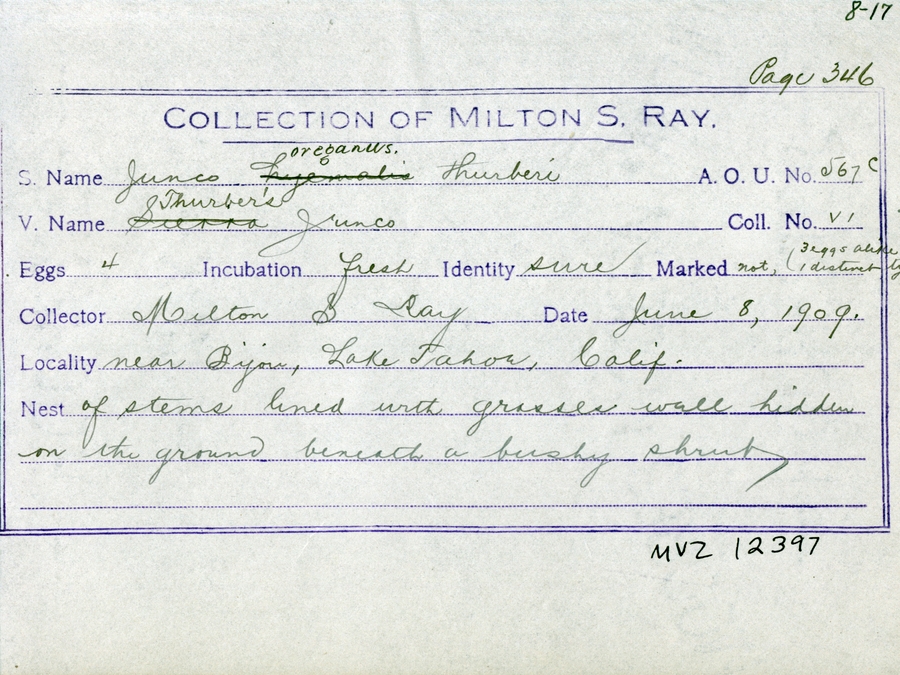 8-17
Page 346
COLLECTION OF MILTON S. RAY.
oreganus.
S. Name Junco hyemalis thurberi A. O. U. No. 567 c
Thurber's
V. Name Sierra Junco Coll. No. VI
Eggs 4 Incubation fresh Identity sure Marked not, (3 eggs alike
1 distinct
Collector Milton S Ray Date June 8, 1909.
Locality near Bijou, Lake Tahoe, Calif.
Nest of stems lined with grasses well hidden
on the ground beneath a bushy shrub
MVZ 12397